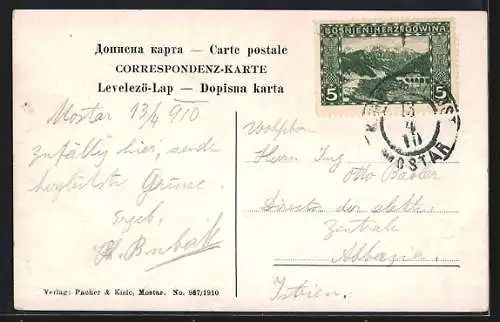 Дописна карта — Carte postale
CORRESPONDENZ-KARTE
Levelező-Lap — Dopisna karta
BOSNIEN I HERZEGOWINA
5 5
13
4
10
MOSTAR
Mostar 13/4 910
zufällig hier, sende
herzlichste Grüsse.
Ergeb.
Herrn Ing.
Otto
Direktor der elektr.
Zentrale
Abbazia.
Istrien.
Verlag: Pacher & Kisić, Mostar. No. 967/1910